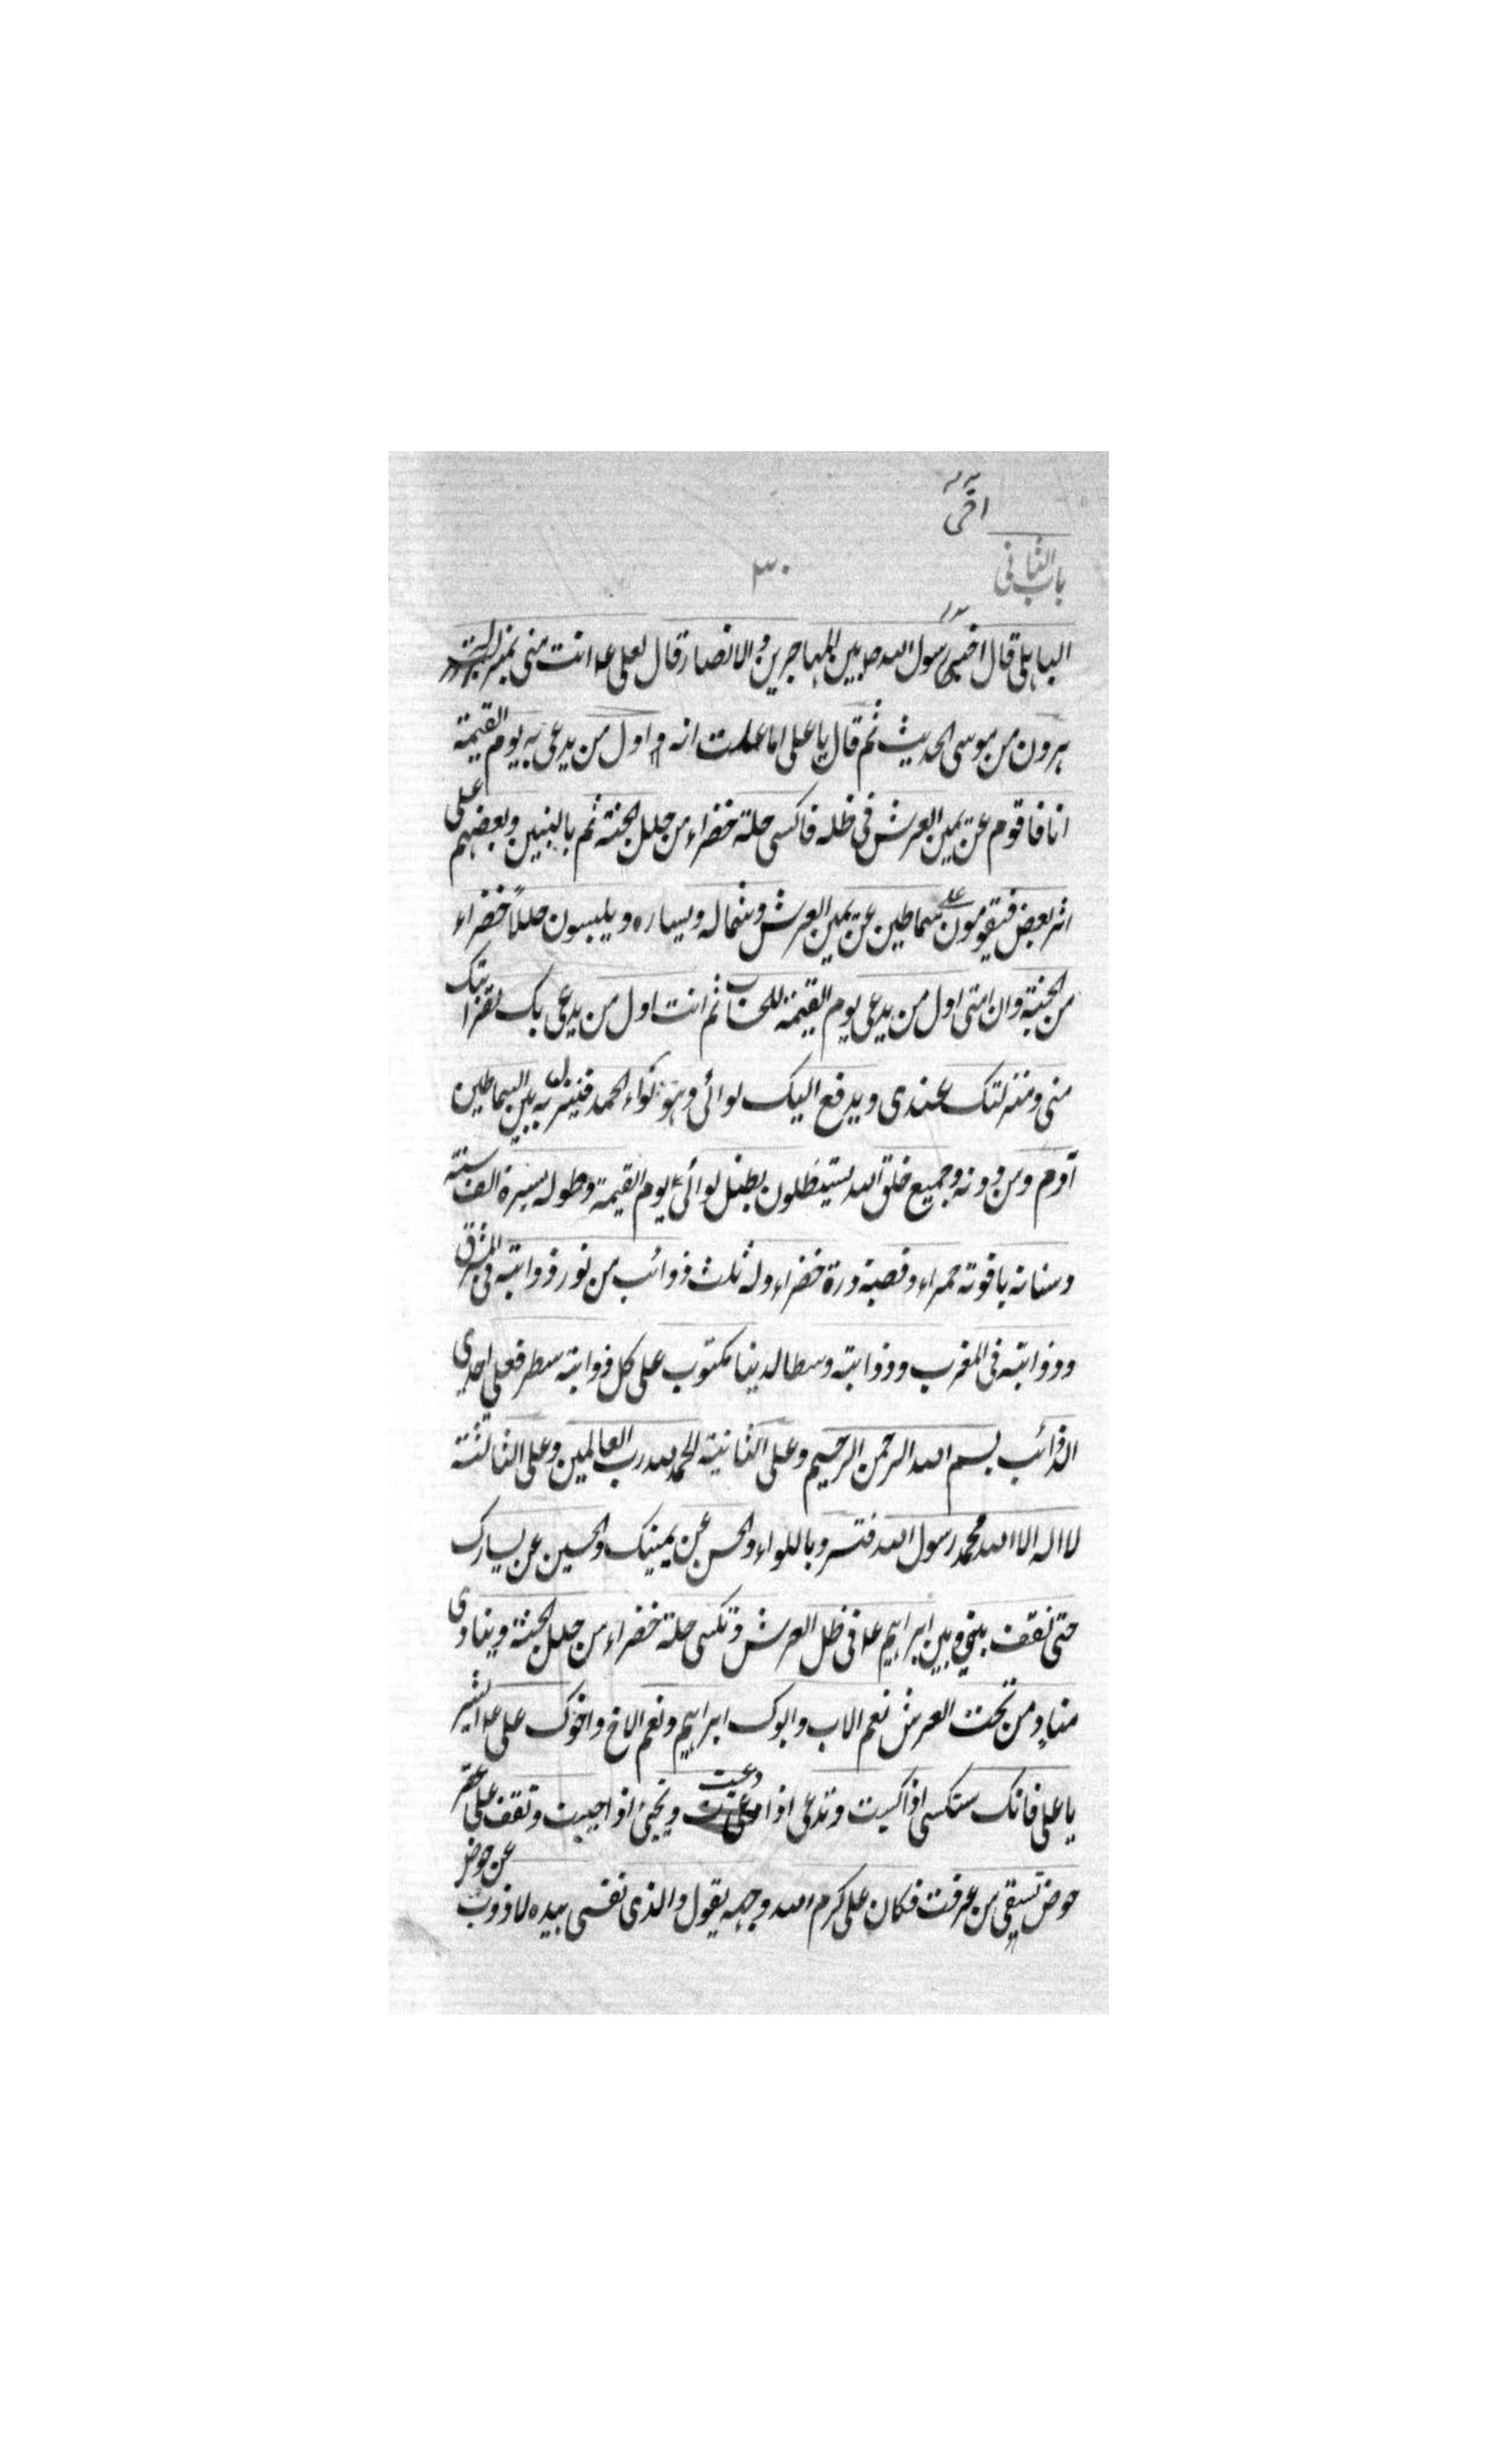 اخی
باب الثانی
۳۰
الباهلی قال اخی رسول الله ص بین المهاجرین والانصار قال لعلی ع انت منی بمنزلة
هرون من موسی الحدیث ثم قال یا علی اما علمت انه اول من یدعی به یوم القیمة
انا فاقوم عن یمین العرش فی ظله فاکسی حلة خضراء من حلل الجنة ثم بالنبیین وبعضهم علی
اثر بعض فیقومون علی سماطین عن یمین العرش وشماله ویساره ویلبسون حللاً خضراء
من الجنة وان امتی اول من یدعی یوم القیمة للحساب ثم انت اول من یدعی بک لقرابتک
منی ومنزلتک عندی ویدفع الیک لوائی وهو لواء الحمد به بین السماطین
آدم ومن دونه وجمیع خلق الله یستظلون بظل لوائی یوم القیمة وطوله مسیرة الف سنة
وسنانه یاقوتة حمراء وقصبة درة خضراء وله ثلث ذوائب من نور ذوابته فی المشرق
وذوابته فی المغرب وذوابته وسط الدینا مکتوب علی کل ذوابته سطر فعلی احدی
الذوائب بسم الله الرحمن الرحیم وعلی الثانیة الحمد لله رب العالمین وعلی الثالثة
لا اله الا الله محمد رسول الله فتسر وباللواء والحسن عن یمینک والحسین عن یسارک
حتی تقف بینی وبین ابراهیم ع فی ظل العرش وتکسی حلة خضراء من حلل الجنة وینادی
منادٍ من تحت العرش نعم الاب وابوک ابراهیم ونعم الاخ واخوک علی ع ابشر
یا علی فانک ستکسی اذا کسیت وتدعی اذا دعیت وتحیی اذا حییت وتقف علی عقر
حوض تسقی من عرفت فکان علی کرم الله وجهه یقول والذی نفسی بیده لاذودن عن حوض